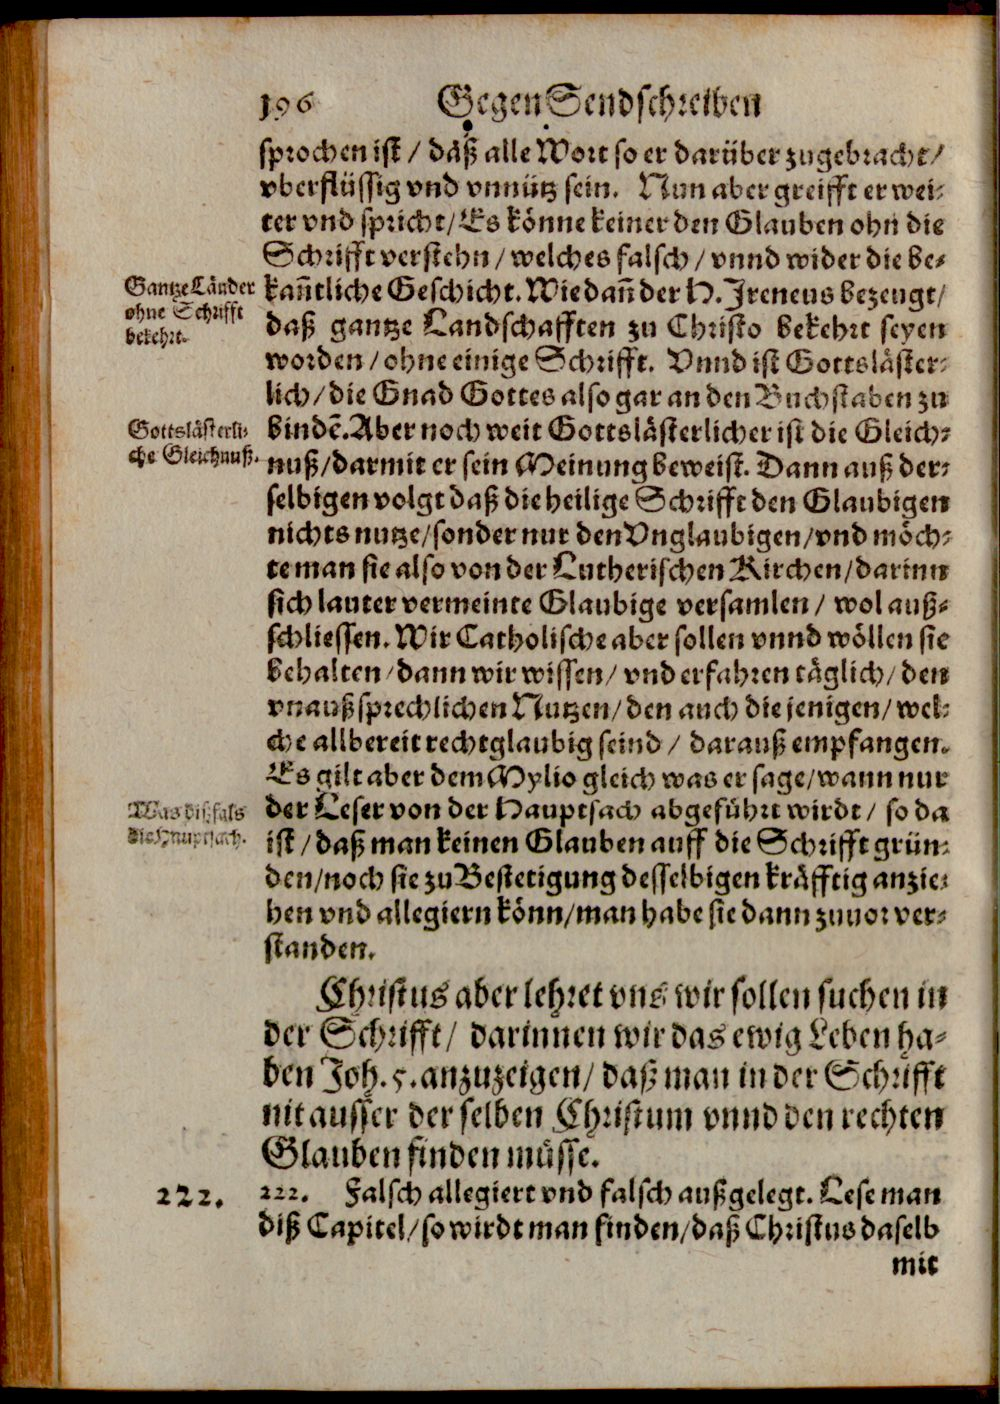 196 GegenSendschreiben
sprochen ist / daß alle Wort so er darüber zugebracht/
vberflüssig vnd vnnütz sein. Nun aber greifft er wei-
ter vnd spricht/Es könne keiner den Glauben ohn die
Schrifft verstehn / welches falsch / vnnd wider die be-
Gantze Länder
ohne Schrifft
bekehrt.
kañtliche Geschicht. Wie dañ der H. Ireneus bezeugt/
daß gantze Landschafften zu Christo bekehrt seyen
worden / ohne einige Schrifft. Vnnd ist Gottsläster-
lich / die Gnad Gottes also gar an den Buchstaben zu
Gottslästerli-
che Gleichnuß.
bindẽ. Aber noch weit Gottslästerlicher ist die Gleich-
nuß/darmit er sein Meinung beweist. Dann auß der-
selbigen volgt daß die heilige Schrifft den Glaubigen
nichts nutze/sonder nur den Vnglaubigen/vnd möch-
te man sie also von der Lutherischen Kirchen/darinn
sich lauter vermeinte Glaubige versamlen / wol auß-
schliessen. Wir Catholische aber sollen vnnd wöllen sie
behalten / dann wir wissen / vnd erfahren täglich / den
vnaußsprechlichen Nutzen / den auch die jenigen / wel-
che allbereit rechtglaubig seind / darauß empfangen.
Es gilt aber dem Mylio gleich was er sage/wann nur
Was dißfals
die Hauptsach.
der Leser von der Hauptsach abgeführt wirdt / so da
ist / daß man keinen Glauben auff die Schrifft grün-
den/noch sie zu Bestetigung desselbigen kräfftig anzie-
hen vnd allegiern könn/man habe sie dann zuuor ver-
standen.
Christus aber lehret vns wir sollen suchen in
der Schrifft / darinnen wir das ewig Leben ha-
ben Joh. 5. anzuzeigen / daß man in der Schrifft
nit ausser der selben Christum vnnd den rechten
Glauben finden müsse.
222.
222. Falsch allegiert vnd falsch außgelegt. Lese man
diß Capitel/so wirdt man finden/daß Christus daselb
mit